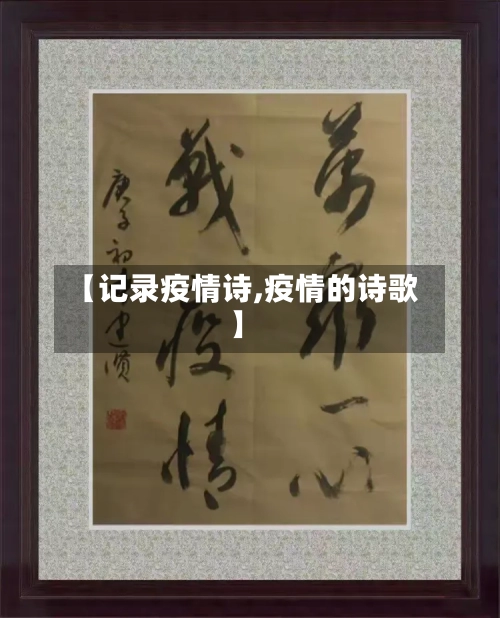 萬衆一心
戰疫情
庚子初
【记录疫情诗,疫情的诗歌
】